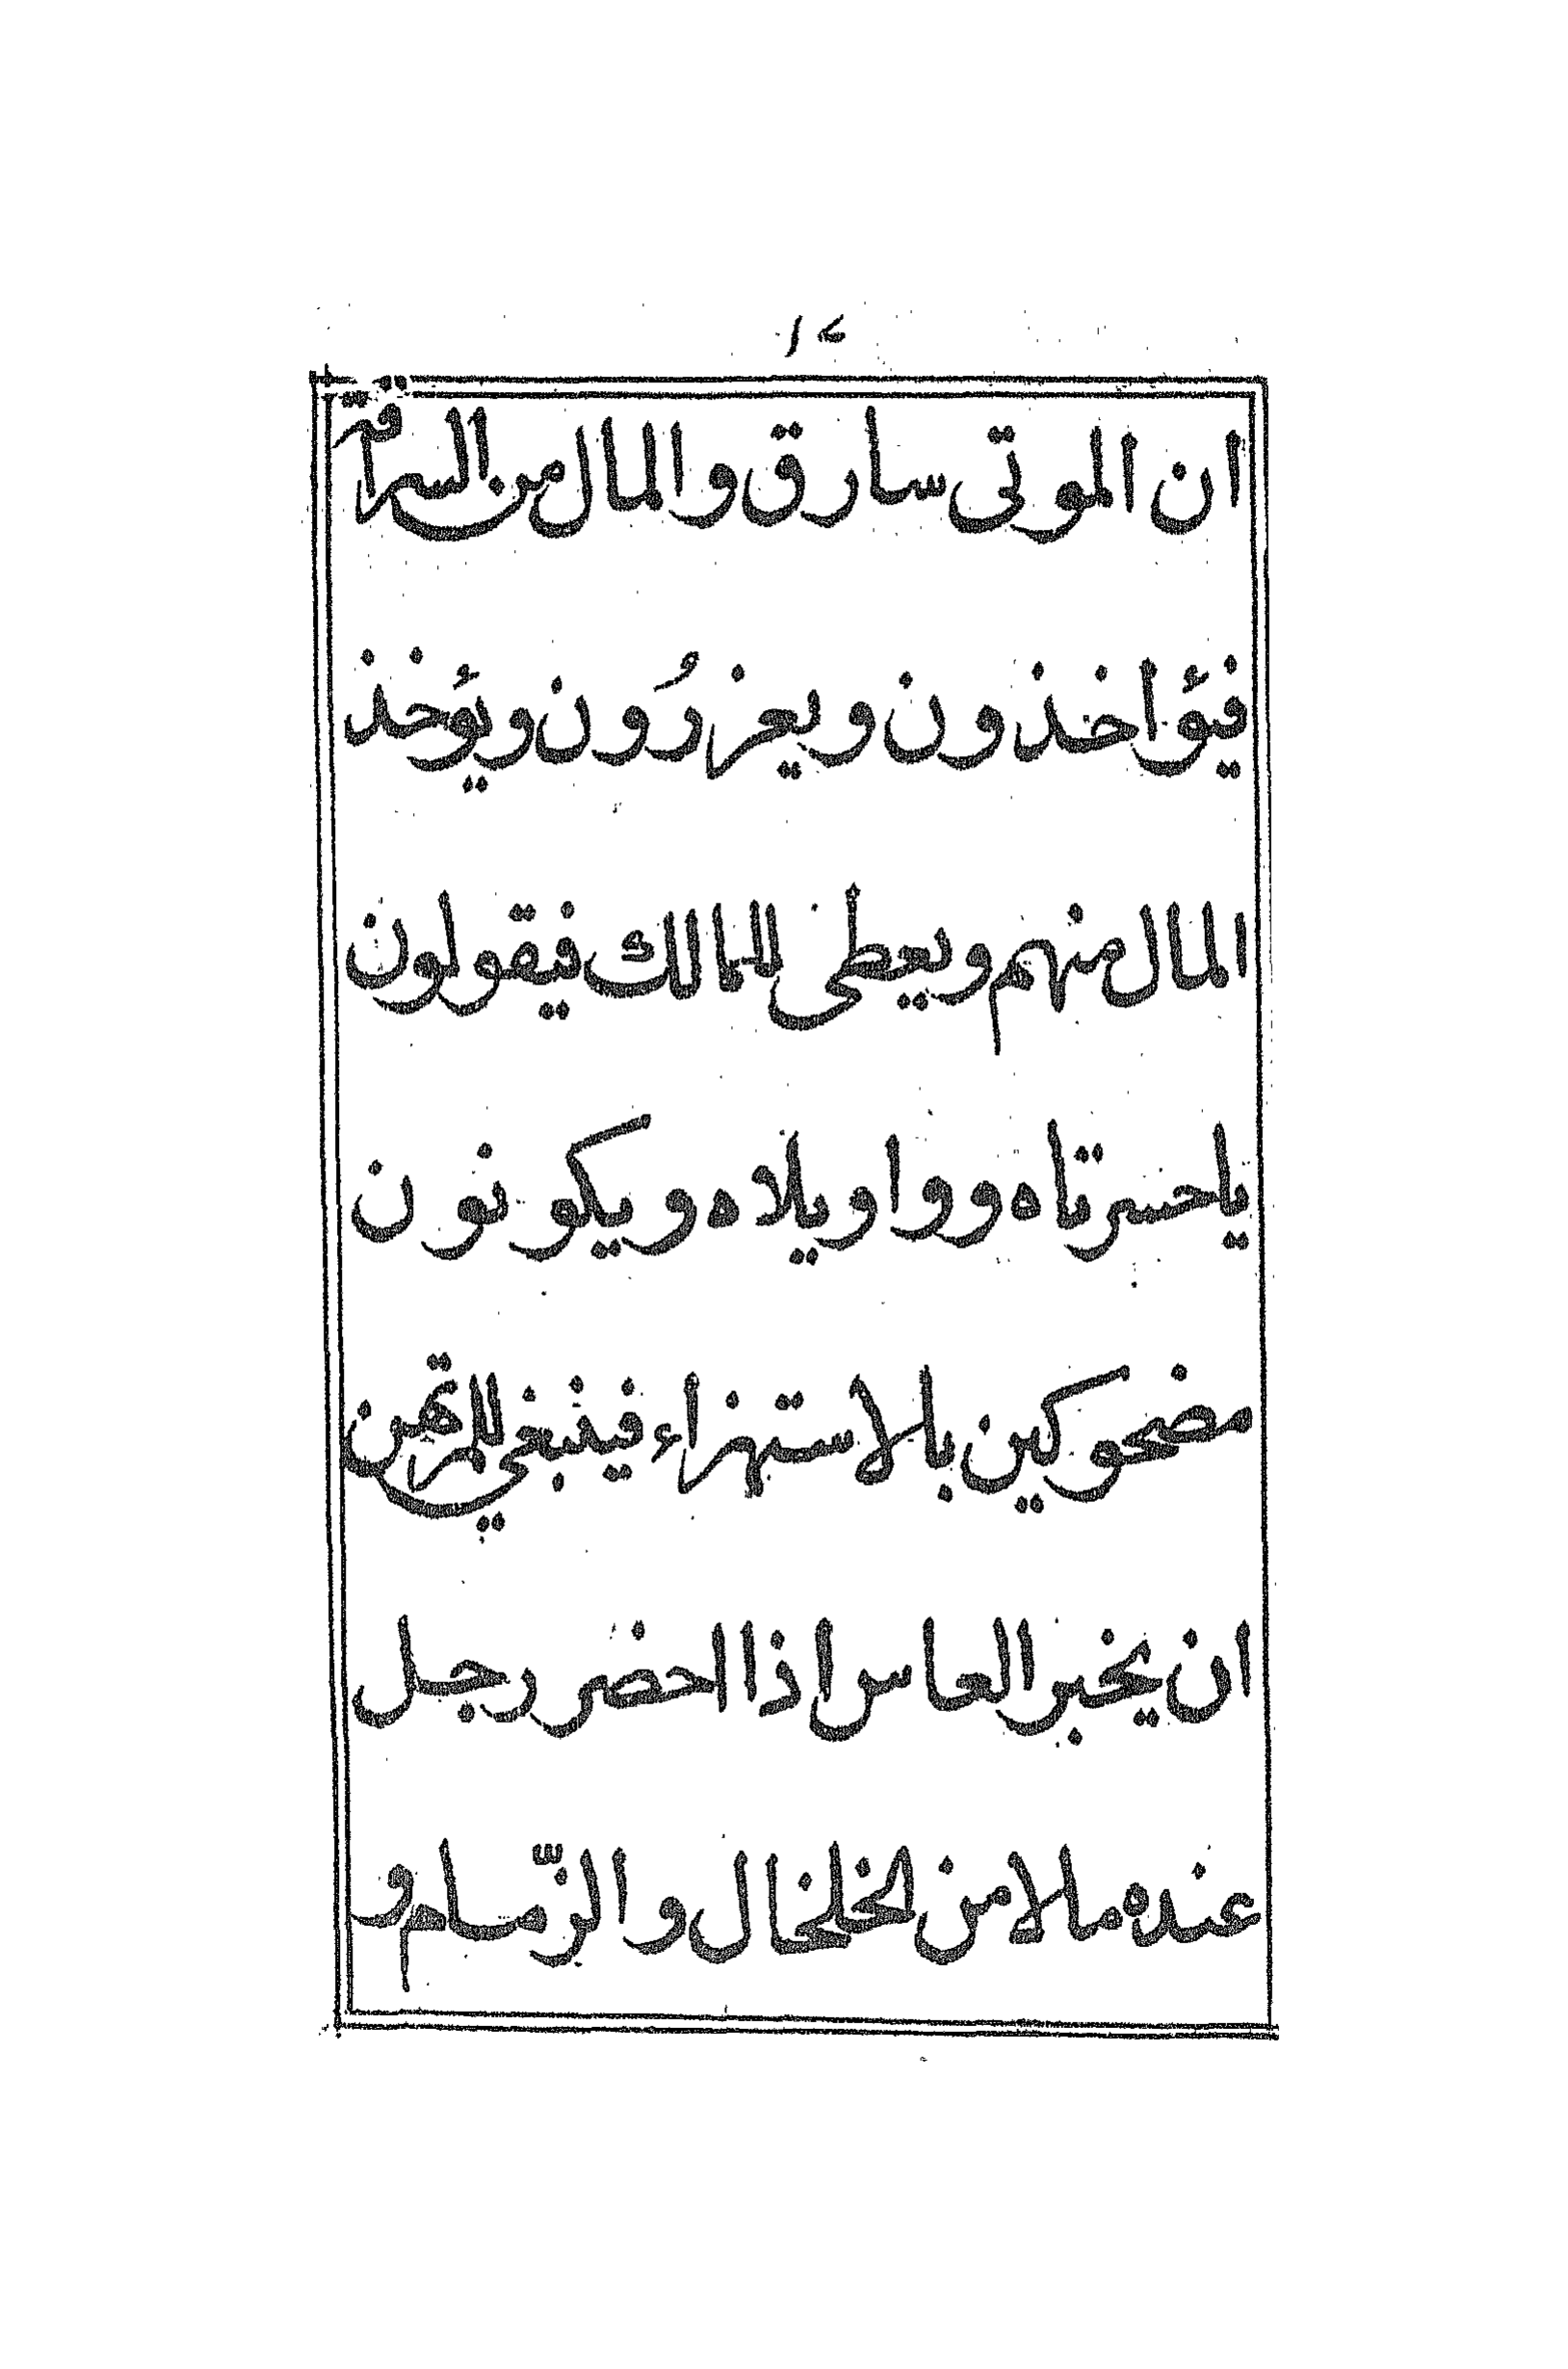 ١٤
ان الموتى سارق والمال من السراقة
فيؤاخذون ويعزرُون ويؤخذ
المال منهم ويعطى للمالك فيقولون
ياحسرتاه وواويلاه ويكونون
مضحوكين بالاستهزاء فينبغي للمرتهن
ان يخبر العاس اذا احضر رجل
عنده ملا من الخلخال والزّمام و